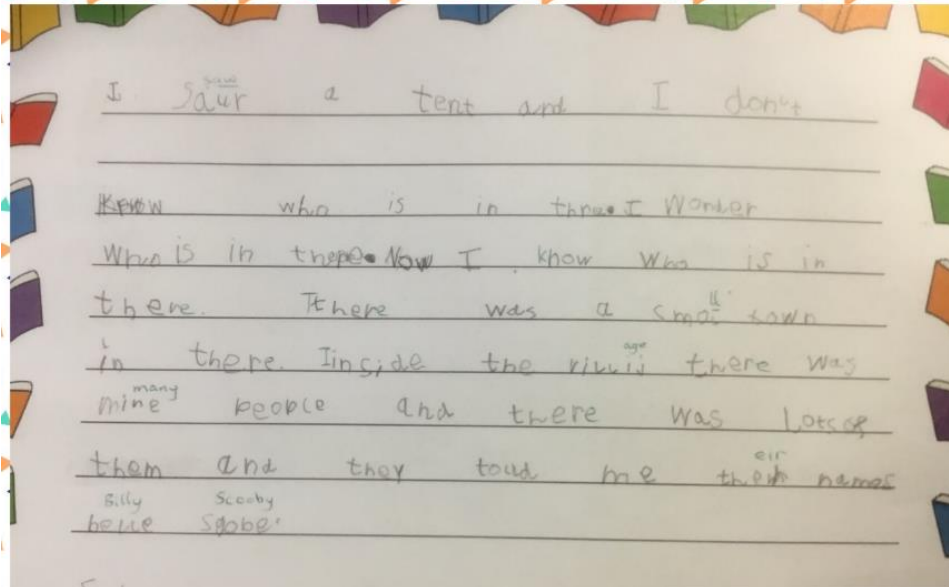 saw
I saur a tent and I don't
Know who is in thre. I Wonder
Who is in there. Now I know who is in
there. There was a smol town
ll
in there. Iinside the villij there was
age
many
mine people and there was Lots of
them and they toud me their names
eir
Billy Scooby
belle Sgobe.